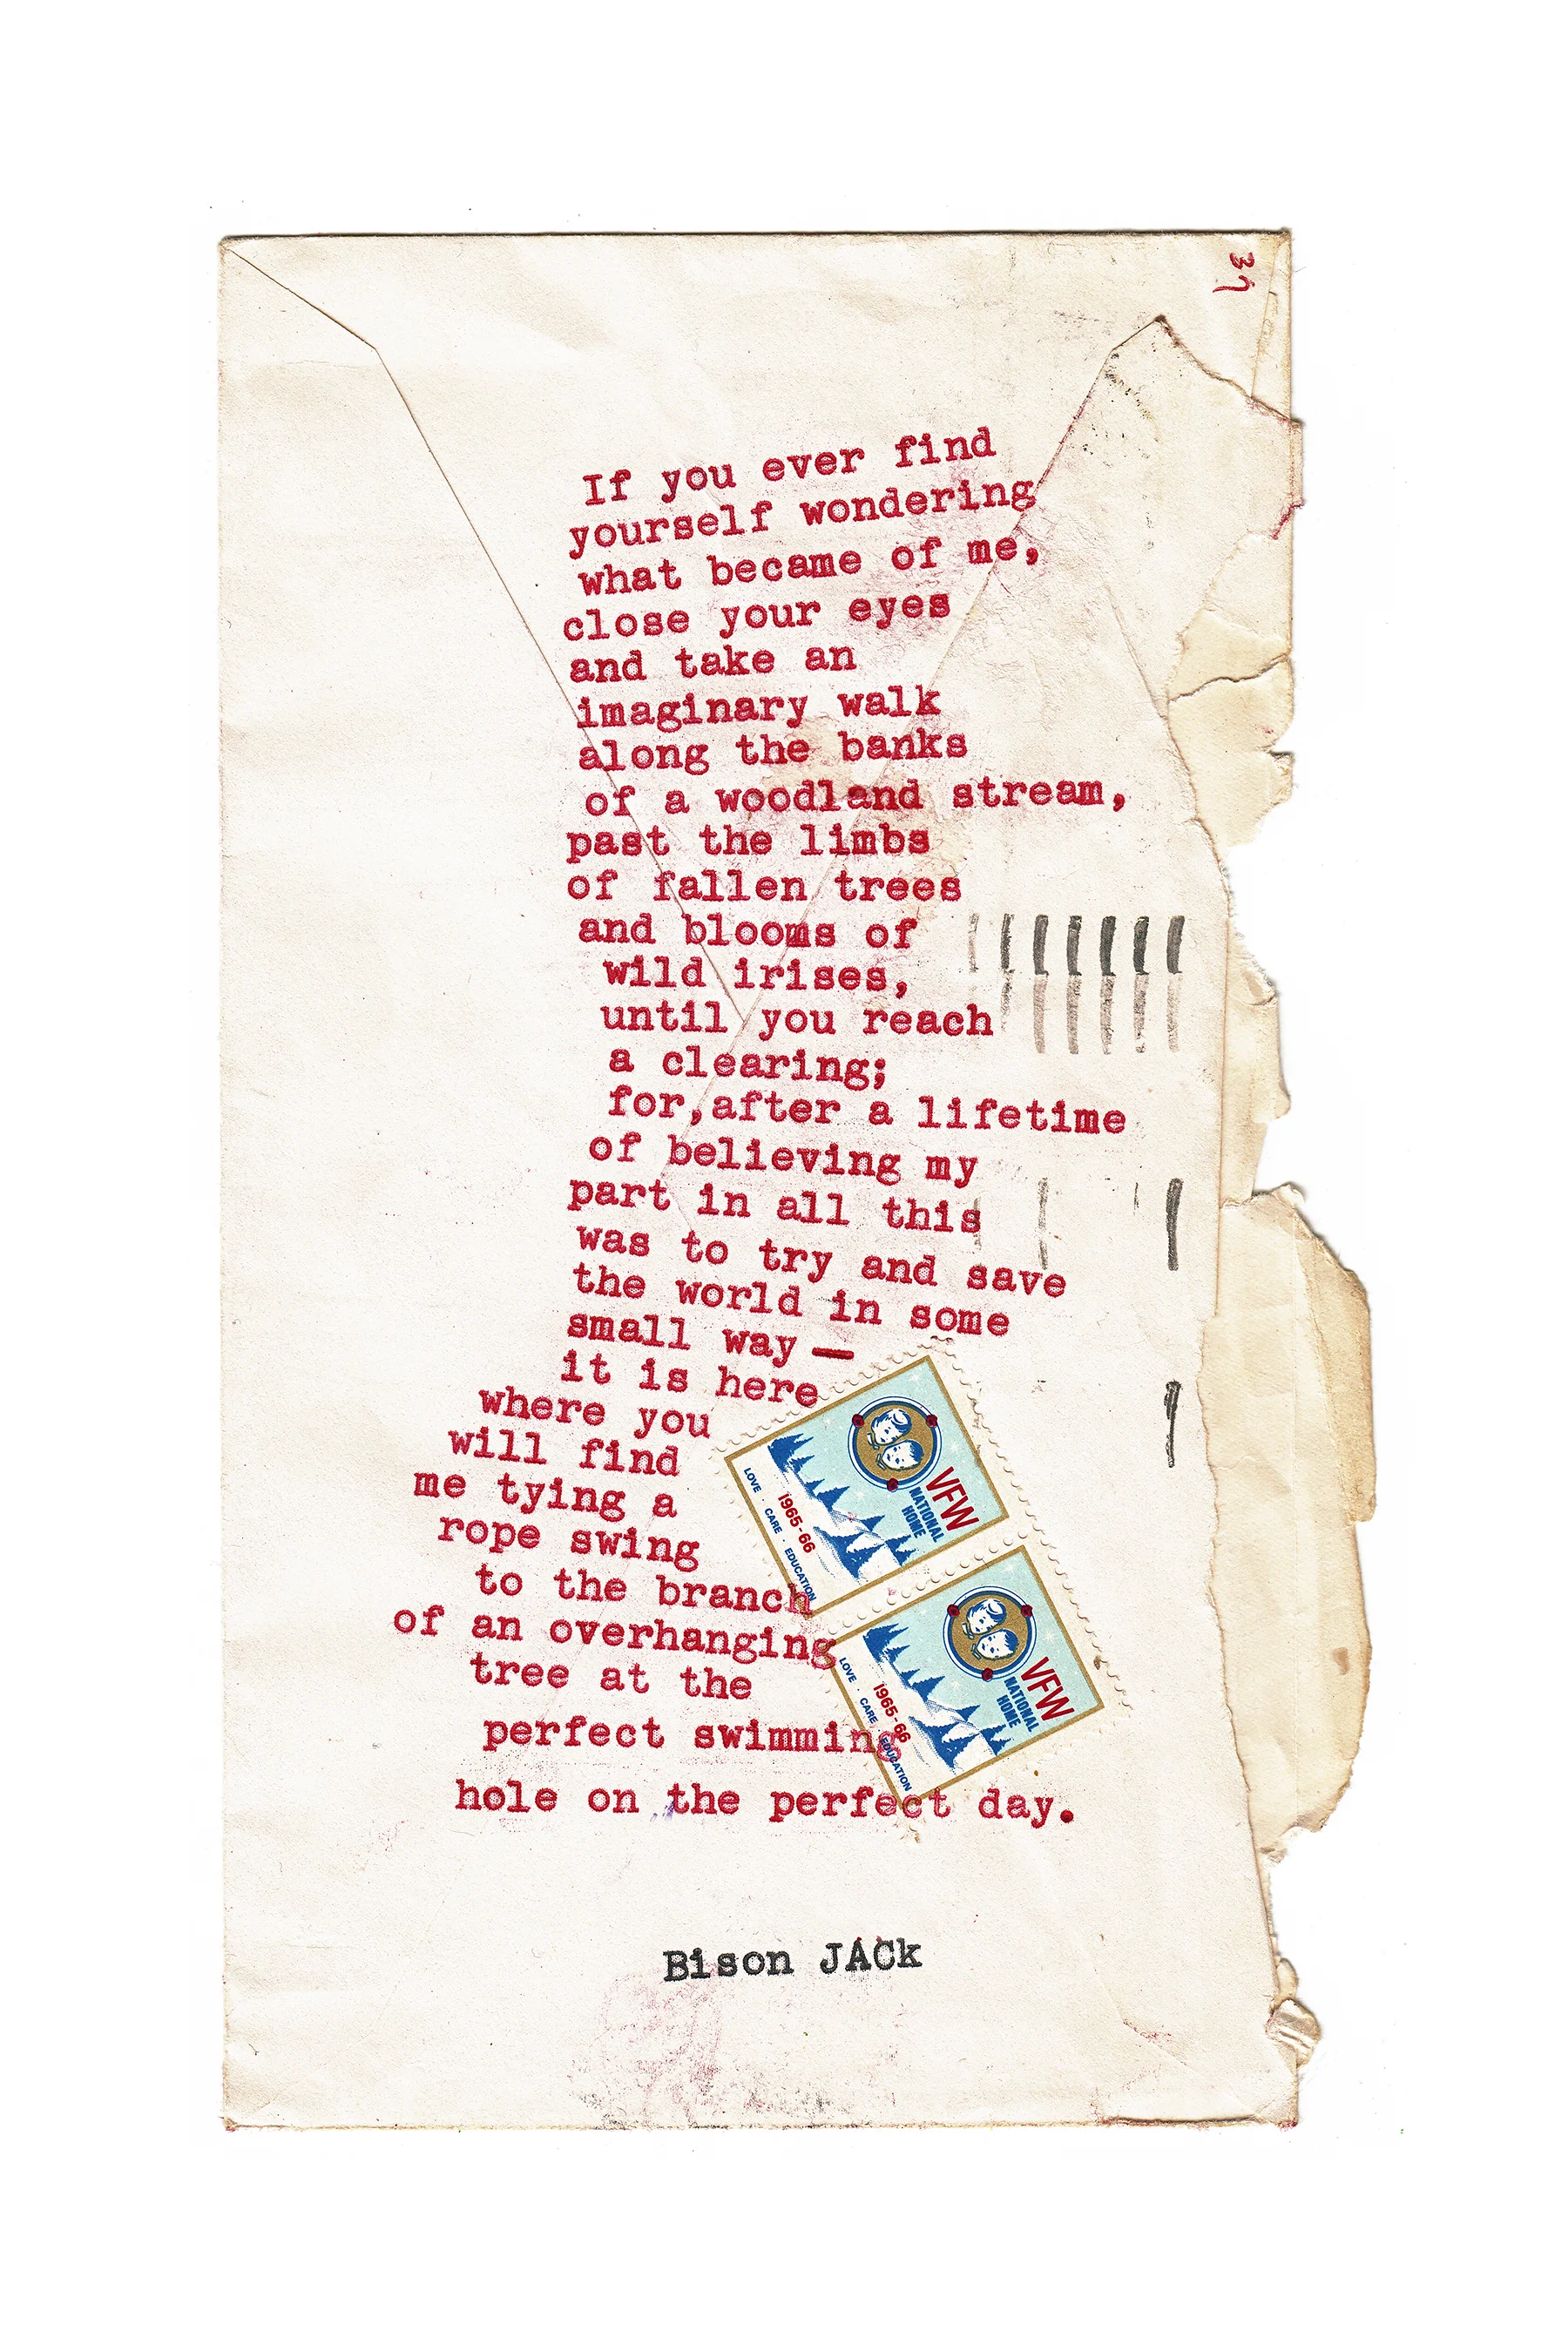 37
If you ever find
yourself wondering
what became of me,
close your eyes
and take an
imaginary walk
along the banks
of a woodland stream,
past the limbs
of fallen trees
and blooms of
wild irises,
until you reach
a clearing;
for,after a lifetime
of believing my
part in all this
was to try and save
the world in some
small way —
it is here
where you
will find
me tying a
rope swing
to the branch
of an overhanging
tree at the
perfect swimming
hole on the perfect day.
VFW
NATIONAL
HOME
1965-66
LOVE · CARE · EDUCATION
VFW
NATIONAL
HOME
1965-66
LOVE · CARE · EDUCATION
Bison JACk